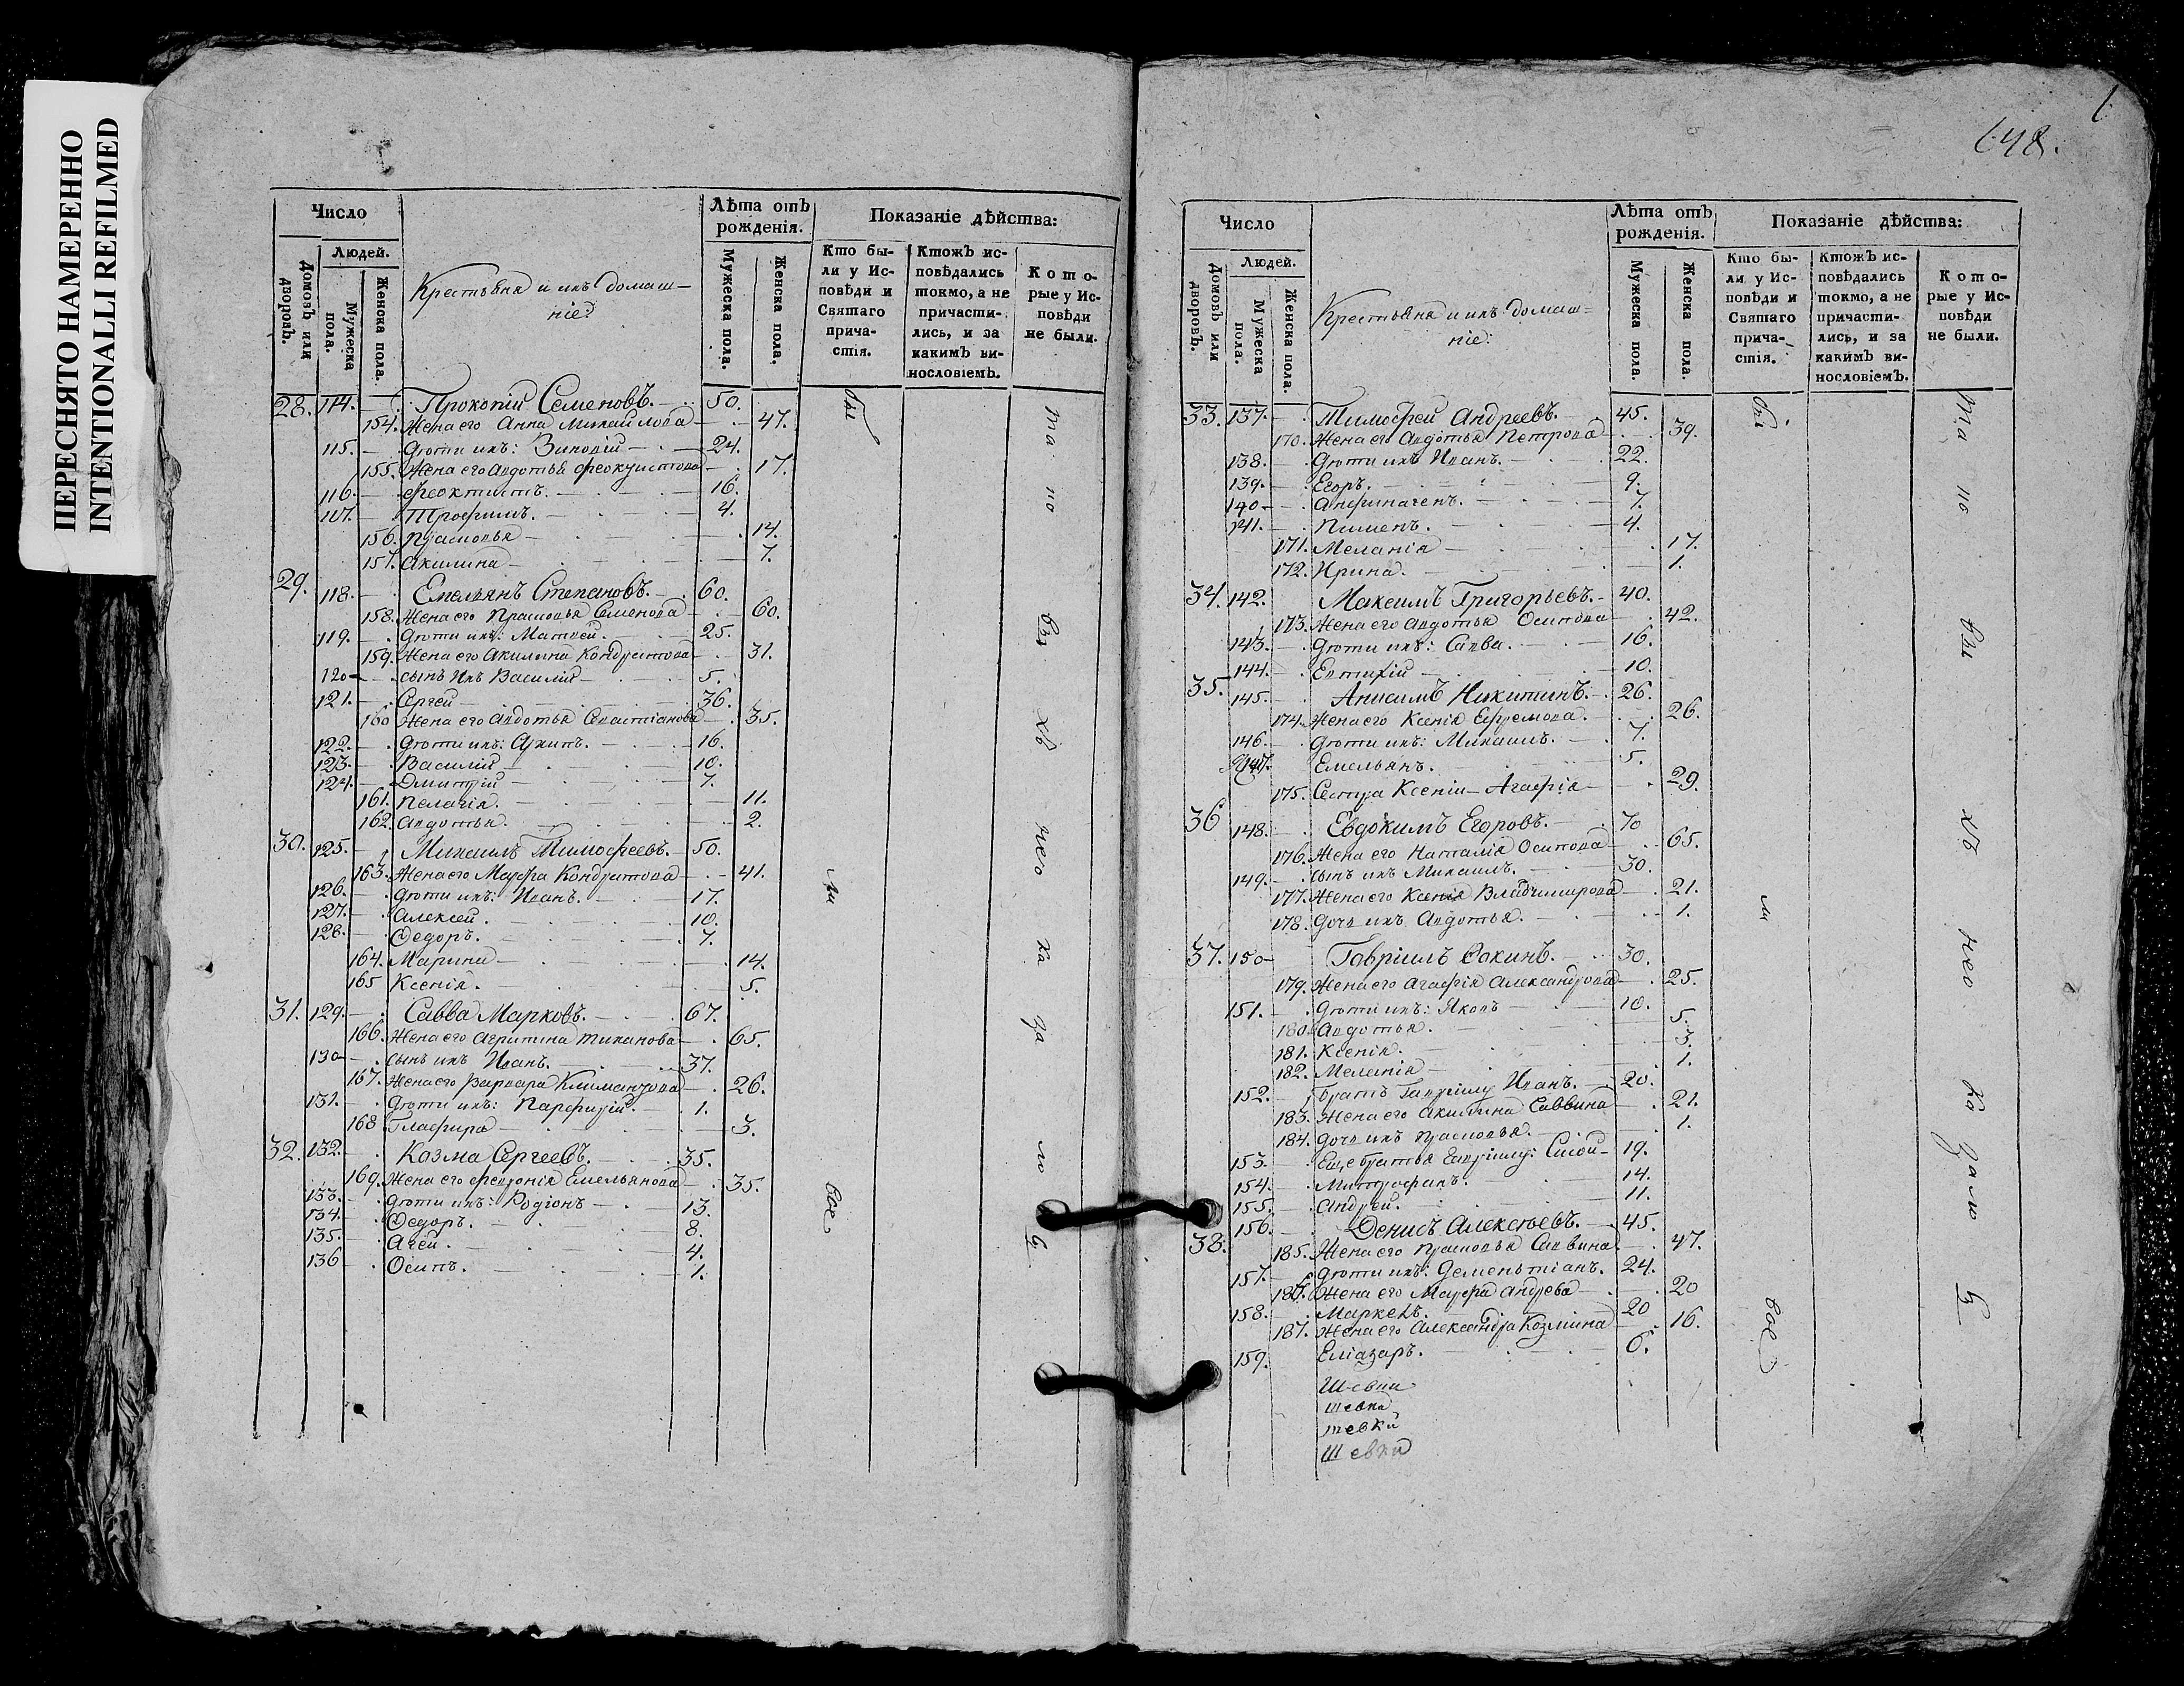 ПЕРЕСНЯТО НАМЕРЕННО
INTENTIONALLI REFILMED
Число
Лѣта отъ рожденія.
Показаніе дѣйства:
Домовъ или дворовъ.
Людей.
Мужеска пола.
Женска пола.
Крестьяна и ихъ домаш-
ніе
Мужеска пола.
Женска пола.
Кто бы-
ли у Ис-
повѣди и
Святаго
прича-
стія.
Ктожъ ис-
повѣдались
токмо, а не
причасти-
лись, и за
какимъ ви-
нословіемъ.
Кото-
рые у Ис-
повѣди
не были.
28. 114. Прокопій Семеновъ. 50.
154. Жена его Анна Михайлова 47.
115. Дѣти ихъ: Зиновій 24.
155. Жена его Авдотья 17.
116. Феоктистъ. 16.
117. Трофимъ. 4.
156. Прасковья 14.
157. Акилина 7.
29. 118. Емельянъ Степановъ. 60.
158. Жена его Прасковья Семенова 60.
119. Дѣти ихъ: Матвей. 25.
159. Жена его Акилина Кондратова 31.
120 сынъ ихъ Василій 5.
121. Сергей 36.
160 Жена его Авдотья Севастіанова 35.
122. Дѣти ихъ: Архипъ. 16.
123. Василій 10.
124. Дмитрій 7.
161. Пелагія. 11.
162. Авдотья. 2.
30. 125. Михаилъ Тимофеевъ. 50.
163. Жена его Марфа Кондратова 41.
126. Дѣти ихъ: Иванъ. 17.
127. Алексей. 10.
128. Федоръ. 7.
164. Марина 14.
165 Ксенія. 5.
31. 129. Савва Марковъ. 67.
166. Жена его Агрипина 65.
130 сынъ ихъ Иванъ. 37.
167. Жена его Варвара 26.
131. Дѣти ихъ: Парфирій. 1.
168 Глафира 3.
32. 132. Козма Сергеевъ. 35.
169. Жена его Февронія Емельянова 35.
133. Дѣти ихъ: Родіонъ 13.
134. Федоръ. 8.
135. Агей. 4.
136 Осипъ. 1.
бы
ли
все
648.
Число
Лѣта отъ рожденія.
Показаніе дѣйства:
Домовъ или дворовъ.
Людей.
Мужеска пола.
Женска пола.
Крестьяна и ихъ домаш=
ніе.
Мужеска пола.
Женска пола.
Кто бы-
ли у Ис-
повѣди и
Святаго
прича-
стія.
Ктожъ ис-
повѣдались
токмо, а не
причасти-
лись, и за
какимъ ви-
нословіемъ.
Кото-
рые у Ис-
повѣди
не были.
33. 137. Тимофей Андреевъ. 45.
170. Жена его Авдотья Петрова 39.
138. Дѣти ихъ Иванъ. 22.
139. Егоръ. 9.
140 7.
141. Пименъ. 4.
171. Меланія 17.
172. Ирина. 1.
34. 142. Максимъ Григорьевъ. 40.
173. Жена его Авдотья Осипова 42.
143. Дѣти ихъ: Савва. 16.
144. Евтихій 10.
35. 145. Анисимъ Никитинъ. 26.
174. Жена его Ксенія Ефремова. 26.
146. Дѣти ихъ: Михаилъ. 7.
147. Емельянъ. 5.
175. Сестра Ксеніи Агафія 29.
36 148. Евдокимъ Егоровъ. 70
176. Жена его Наталія Осипова 65.
149. сынъ ихъ Михаилъ. 30.
177. Жена его Ксенія Владимирова 21.
178. Дочь ихъ Авдотья. 1.
37. 150 Гавріилъ 30.
179. Жена его Агафія Александрова 25.
151. Дѣти ихъ: Яковъ 10.
180. Авдотья. 5.
181. Ксенія. 3.
182. Меланія 1.
152. братъ Гавріилу Иванъ. 20.
183. Жена его Акилина Саввина 21.
184. дочь ихъ Прасковья. 1.
153. Еще братья Гавріилу: 19.
154. Митрофанъ. 14.
155. Андрей. 11.
38. 156. Денисъ Алексѣевъ. 45.
185. Жена его Прасковья Саввина. 47.
157. Дѣти ихъ: Дементіанъ. 24.
186. Жена его Марфа Андрева 20
158. Маркелъ. 20
187. Жена его Александра Козмина 16.
159. Еліазаръ. 6.
бы
ли
все